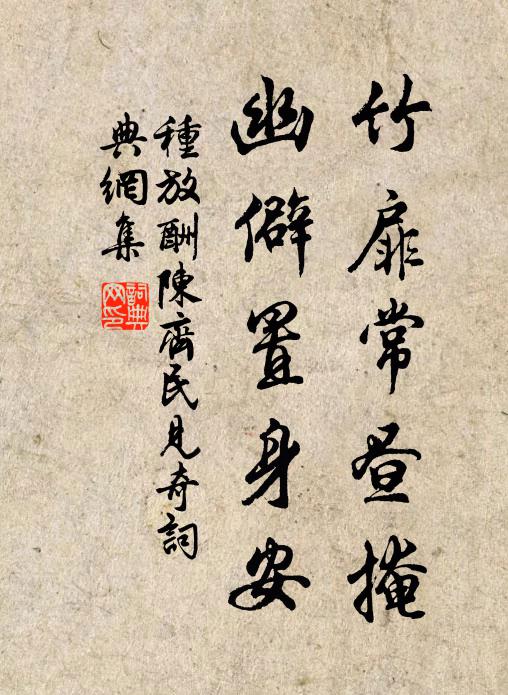 竹扉常昼掩
幽僻置身安
種放酬陳齊民見奇詞
典網集
詞典网印